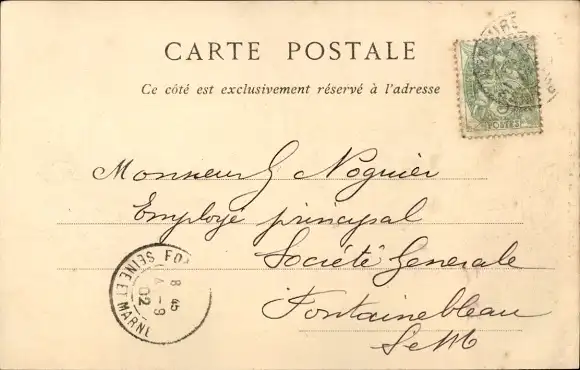 CARTE POSTALE
Ce côté est exclusivement réservé à l'adresse
POSTES
Monsieur G Noguier
Employé principal
Société Generale
Fontainebleau
S et M
SEINE ET MARNE
8 45
4 - 9
02